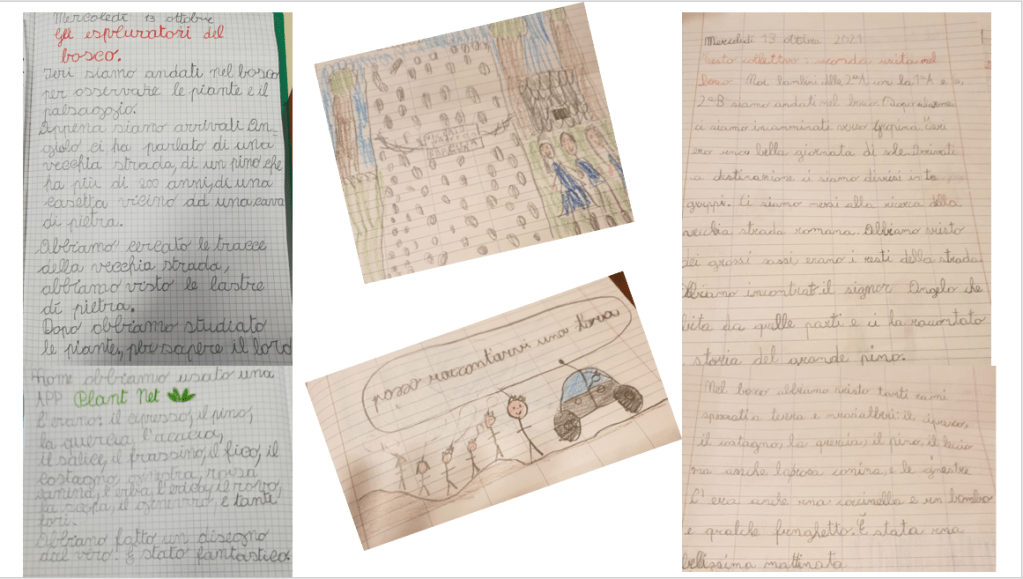 Mercoledì 13 ottobre
Gli espluratori del
bosco.
Ieri siamo andati nel bosco
per osservare le piante e il
paesaggio.
Appena siamo arrivati An-
giolo ci ha parlato di una
vecchia strada, di un pino che
ha più di 200 anni, di una
casetta vicino ad una cava
di pietra.
Abbiamo cercato le tracce
della vecchia strada,
abbiamo visto le lastre
di pietra.
Dopo abbiamo studiato
le piante, per sapere il loro
nome abbiamo usato una
APP Plant Net
C'erano: il cipresso, il pino,
la quercia, l'acacia,
il salice, il frassino, il fico, il
castagno, ginestra, rovsa
canina, l'erba, l'erica, il rovo,
la scopa, il ginepro e tanti
fiori.
Abbiamo fatto un disegno
dal vero. È stato fantastico.
posso raccontarvi una storia
Mercoledì 13 ottobre 2021
Testo collettivo: seconda uscita nel
bosco Noi bambini della 2ªA con la 1ªA e la
2ªB siamo andati nel bosco. Dopo
ci siamo incamminati verso Gropina. C'era
una bella giornata di sole. Arrivati
a destinazione ci siamo divisi in tre
gruppi. Ci siamo messi alla ricerca della
vecchia strada romana. Abbiamo visto
dei grossi sassi erano i resti della strada.
Abbiamo incontrat il signor Angelo che
vita da quelle parti e ci ha raccontato
storia del grande pino.
Nel bosco abbiamo visto tanti rami
a terra e
il castagno, la quercia, il pino, il leccio
ma anche la rosa canina e le ginestre
C'era anche una coccinella e un bombo
e qualche funghetto. È stata una
bellissima mattinata